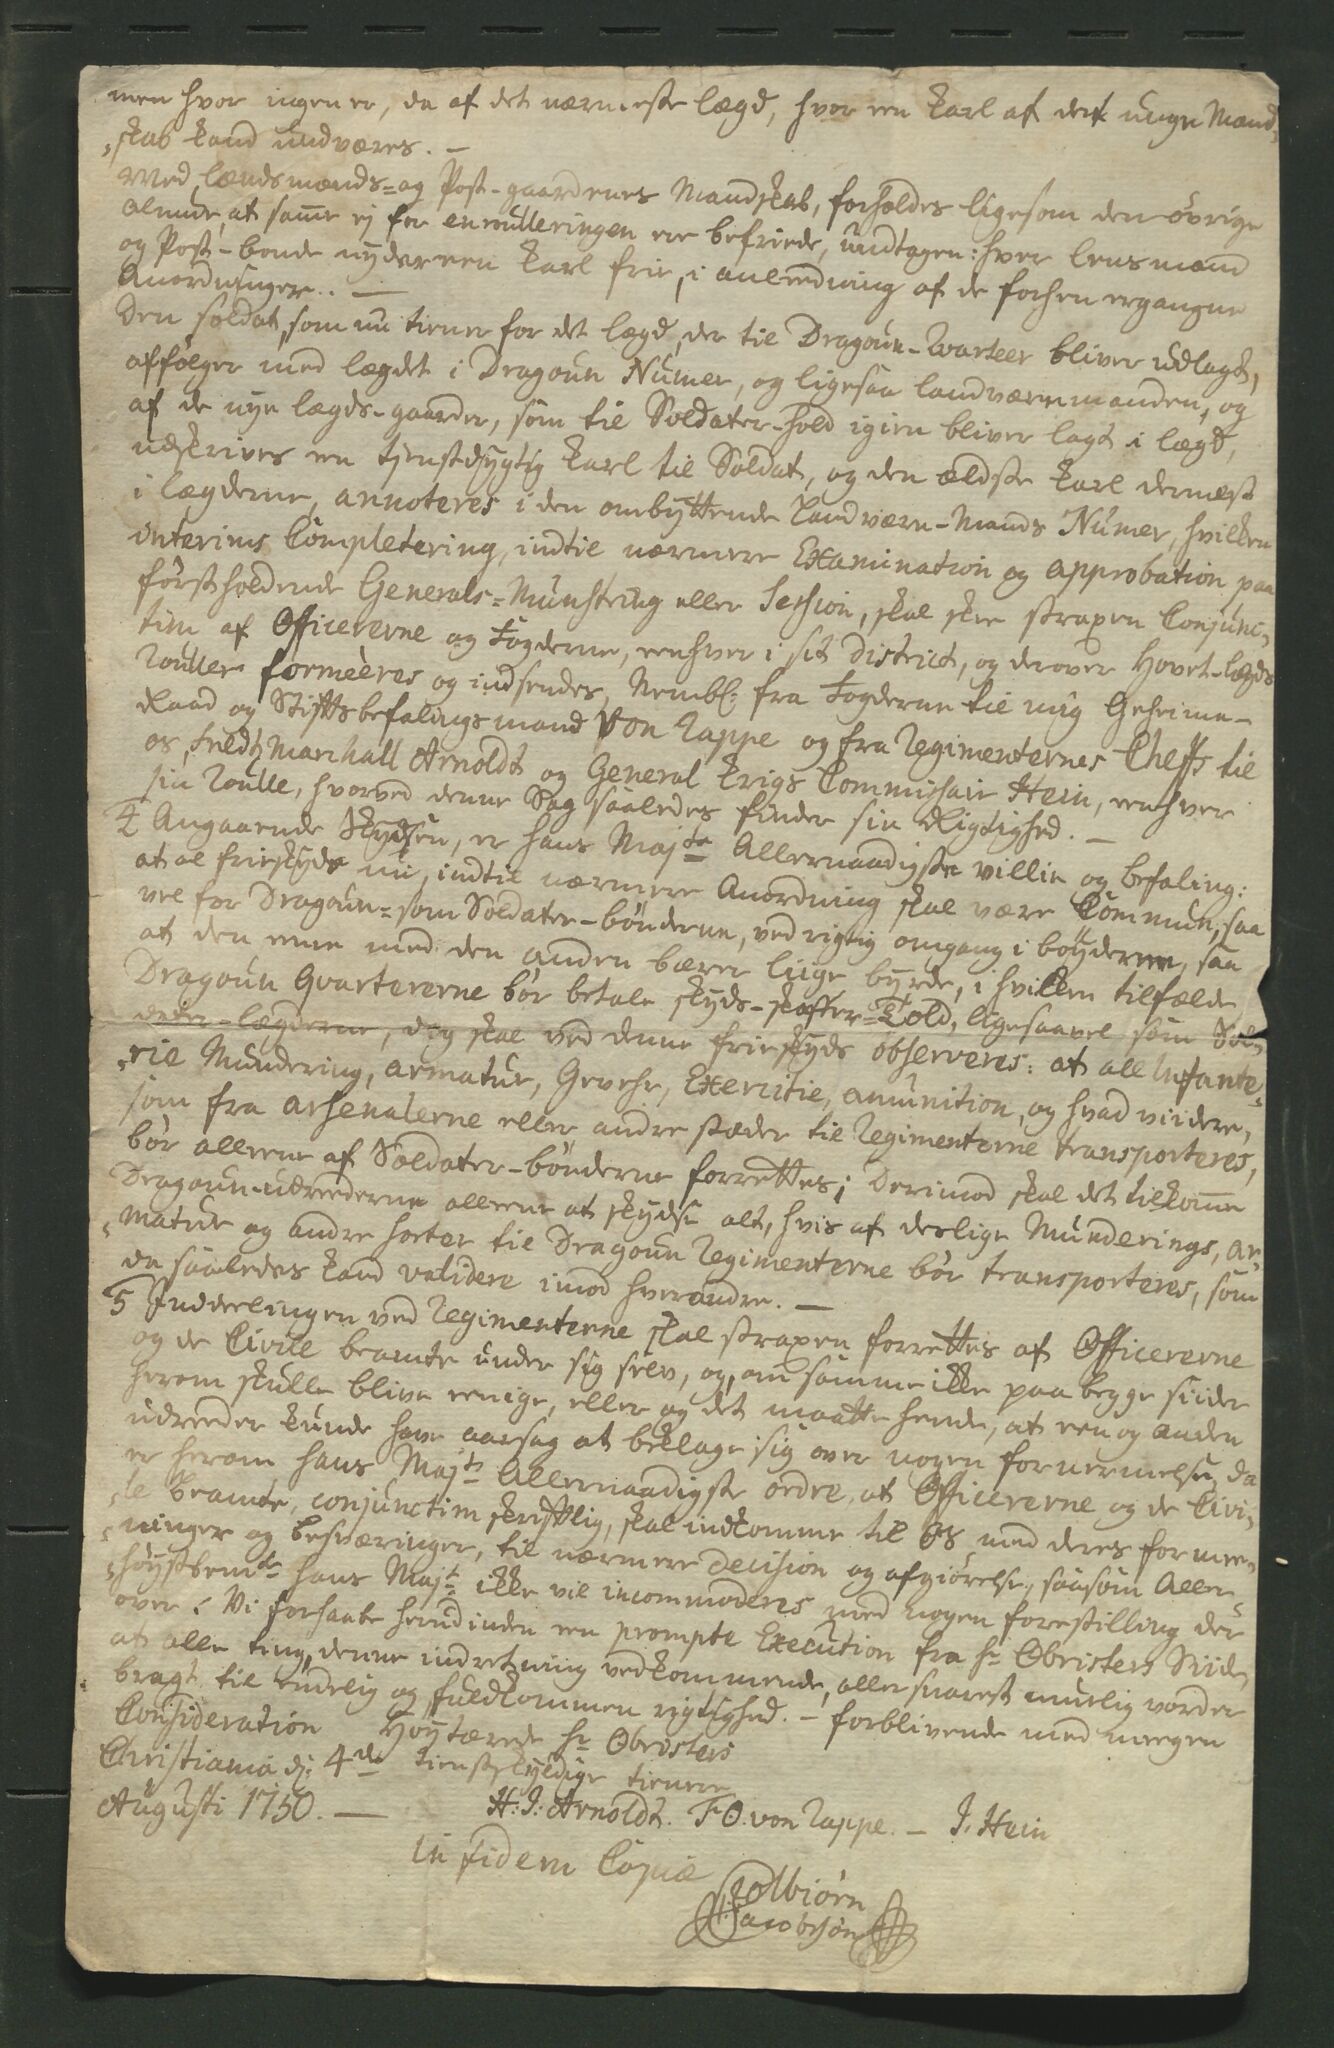 men hvor ingen er, da af det nærmeste lægd, hvor een karl af dett unge Mand-
„skab kand undværes. —
Med lændsmænds= og Post-gaardenes Mandskab, forholdes ligesom den øvrige
almue, at samme ej for enroulleringen ere befriede, undtagen: hver lensmand
og Post-bonde nyder een karl frie, i anledning af de forhen ergangne
Anordninger. —
Den soldat, som nu tiener for det lægd, der til Dragoun-Qvarteer bliver udlagt,
affølger med lægdet i Dragoun Numer, og ligesaa landværnmanden, og
af de nye lægds-gaarder, som til Soldater-hold igien bliver lagt i lægd,
udskrives en tjenstdygtig karl til Soldat, og den ældste karl dernæst
i lægderne, annoteres i den ombyttende Landværn-Mands Numer, hvilken
interims Completering, indtil nærmere Examination og approbation paa
førstholdende Generals=Munstring eller Session, skal skee straxen Conjunc„
tim af Officererne og Fogderne, eenhver i sit District, og derover Hovet-lægds
Roulle formeeres og indsendes, Nembl: fra Fogderne til mig Geheime-
Raad og Stiftsbefalingsmand Von Rappe og fra Regimenternes Cheffs til
os, Feldt Marchall Arnoldt og General Krigs Commissair Hein, eenhver
sin Roulle, hvorved denne Sag saaledes finder sin Rigtighed. —
4 Angaaende Skydsen, er hans Majts Allernaadigste villie og befaling:
at al frieskyds nu, indtil nærmere Anordning skal være Commun, saa
vel for Dragoun= som Soldater-bønderne, ved rigtig omgang i bøyderne, saa
at den eene med den anden bærer liige byrde, i hvilken tilfælde
Dragoun Qvartererne bør betale skyds-skaffer=Told, ligesaavel som Sol„
dater-lægderne, dog skal ved denne frieskyds observeres: at all Infante„
„rie Mundering, armatur, Gevehr, Exercitie, amunition, og hvad viidere,
som fra arsenalerne eller andre stæder til Regimenterne transporteres,
bør alleene af Soldater-bønderne forrettes; Derimod skal det tilkomme
Dragoun-udreederne alleene at skydse alt, hvis af deslige Munderings, ar„
„matur og andre sorter til Dragoun Regimenterne bør transporteres, som
da saaledes kand validere imod hverandre. —
5 Inddeelingen ved Regimenterne skal straxen forrettes af Officererne
og de Civile beamte under sig selv, og, om samme ikke paa begge siider
herom skulle blive eenige, eller og det maatte hende, at een og anden
udreeder kunde have aarsag at beklage sig over nogen fornermelse, da
er herom hans Majts Allernaadigste ordre, at Officererne og de Civi„
„le beamte, conjunctim skriftlig, skal indkomme til os med deres formee„
„ninger og besværinger, til nærmere Decision og afgiørelse, saasom Aller„
„høystbemte hans Majt ikke vil incommoderes med nogen forestilling der
over. Vi forhaabe herudinden een prompte Execution fra hr Obristers Siide,
at alle ting, denne indretning vedkommende, aller snarest muelig vorder
bragt til endelig og fuldkommen rigtighed. — forblivende med megen
Consideration Høytærede hr Obristers
Christiania dj: 4de tienstskyldige tienere
Augusti 1750. — H: J: Arnoldt. F O. von Rappe. — J. Hein
in fidem Copiæ
Colbiørn
Jacobsøn